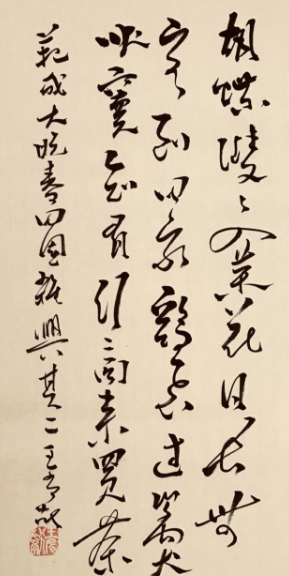 胡蝶雙々入菜花日長無
客到田家鷄飛過籬犬
吠竇知有行商来買茶
范成大晚春田園雜興其二王